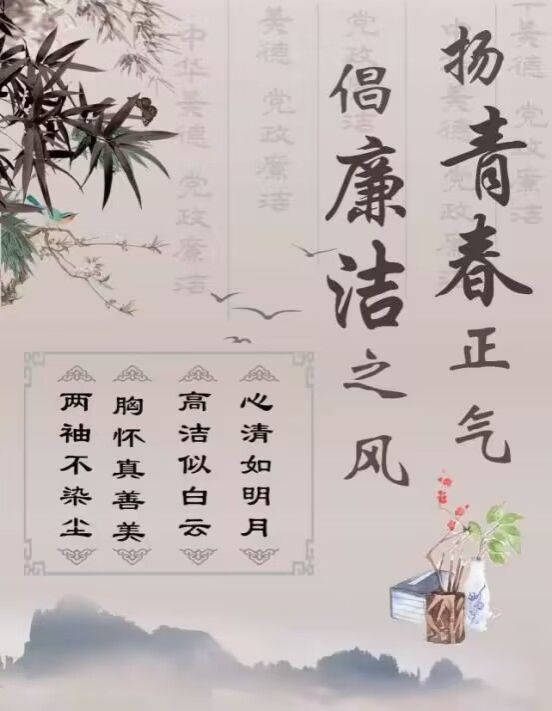 扬青春正气
倡廉洁之风
心清如明月
高洁似白云
胸怀真善美
两袖不染尘
中华美德 党政廉洁
美德 党政廉洁
党政